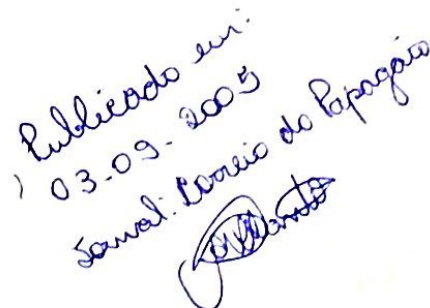 Publicado em:
03-09-2005
Jornal: Correio do Papagaio